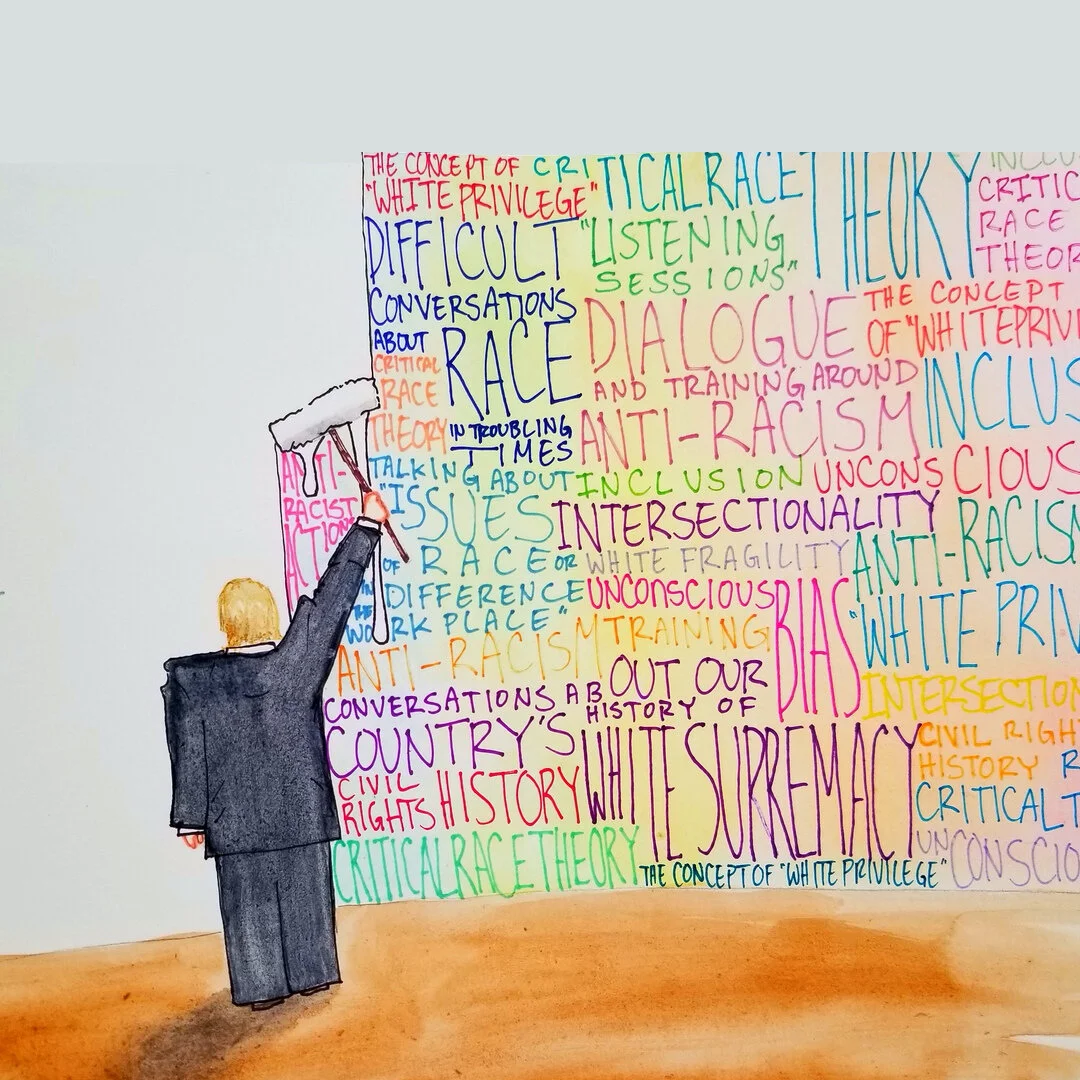 THE CONCEPT OF
"WHITE PRIVILEGE"
CRITICAL RACE THEORY
CRITIC
RACE
THEOR
DIFFICULT
CONVERSATIONS
ABOUT
RACE
IN TROUBLING
TIMES
"LISTENING
SESSIONS"
DIALOGUE
AND TRAINING AROUND
ANTI-RACISM
THE CONCEPT
OF "WHITE PRIVI
INCLUS
CRITICAL
RACE
THEORY
ANTI-
RACIST
ACTIONS
TALKING ABOUT
"ISSUES
OF RACE OR
DIFFERENCE
IN
THE
WORK PLACE"
INCLUSION
UNCONSCIOUS
INTERSECTIONALITY
ANTI-RACISM
WHITE FRAGILITY
UNCONSCIOUS
BIAS
"WHITE PRIV
ANTI-RACISM TRAINING
CONVERSATIONS ABOUT OUR
HISTORY OF
COUNTRY'S
WHITE SUPREMACY
INTERSECTION
CIVIL
RIGHTS
HISTORY
CIVIL RIGH
HISTORY R
CRITICAL T
CRITICAL RACE THEORY
THE CONCEPT OF "WHITE PRIVILEGE"
UNCONSCIO